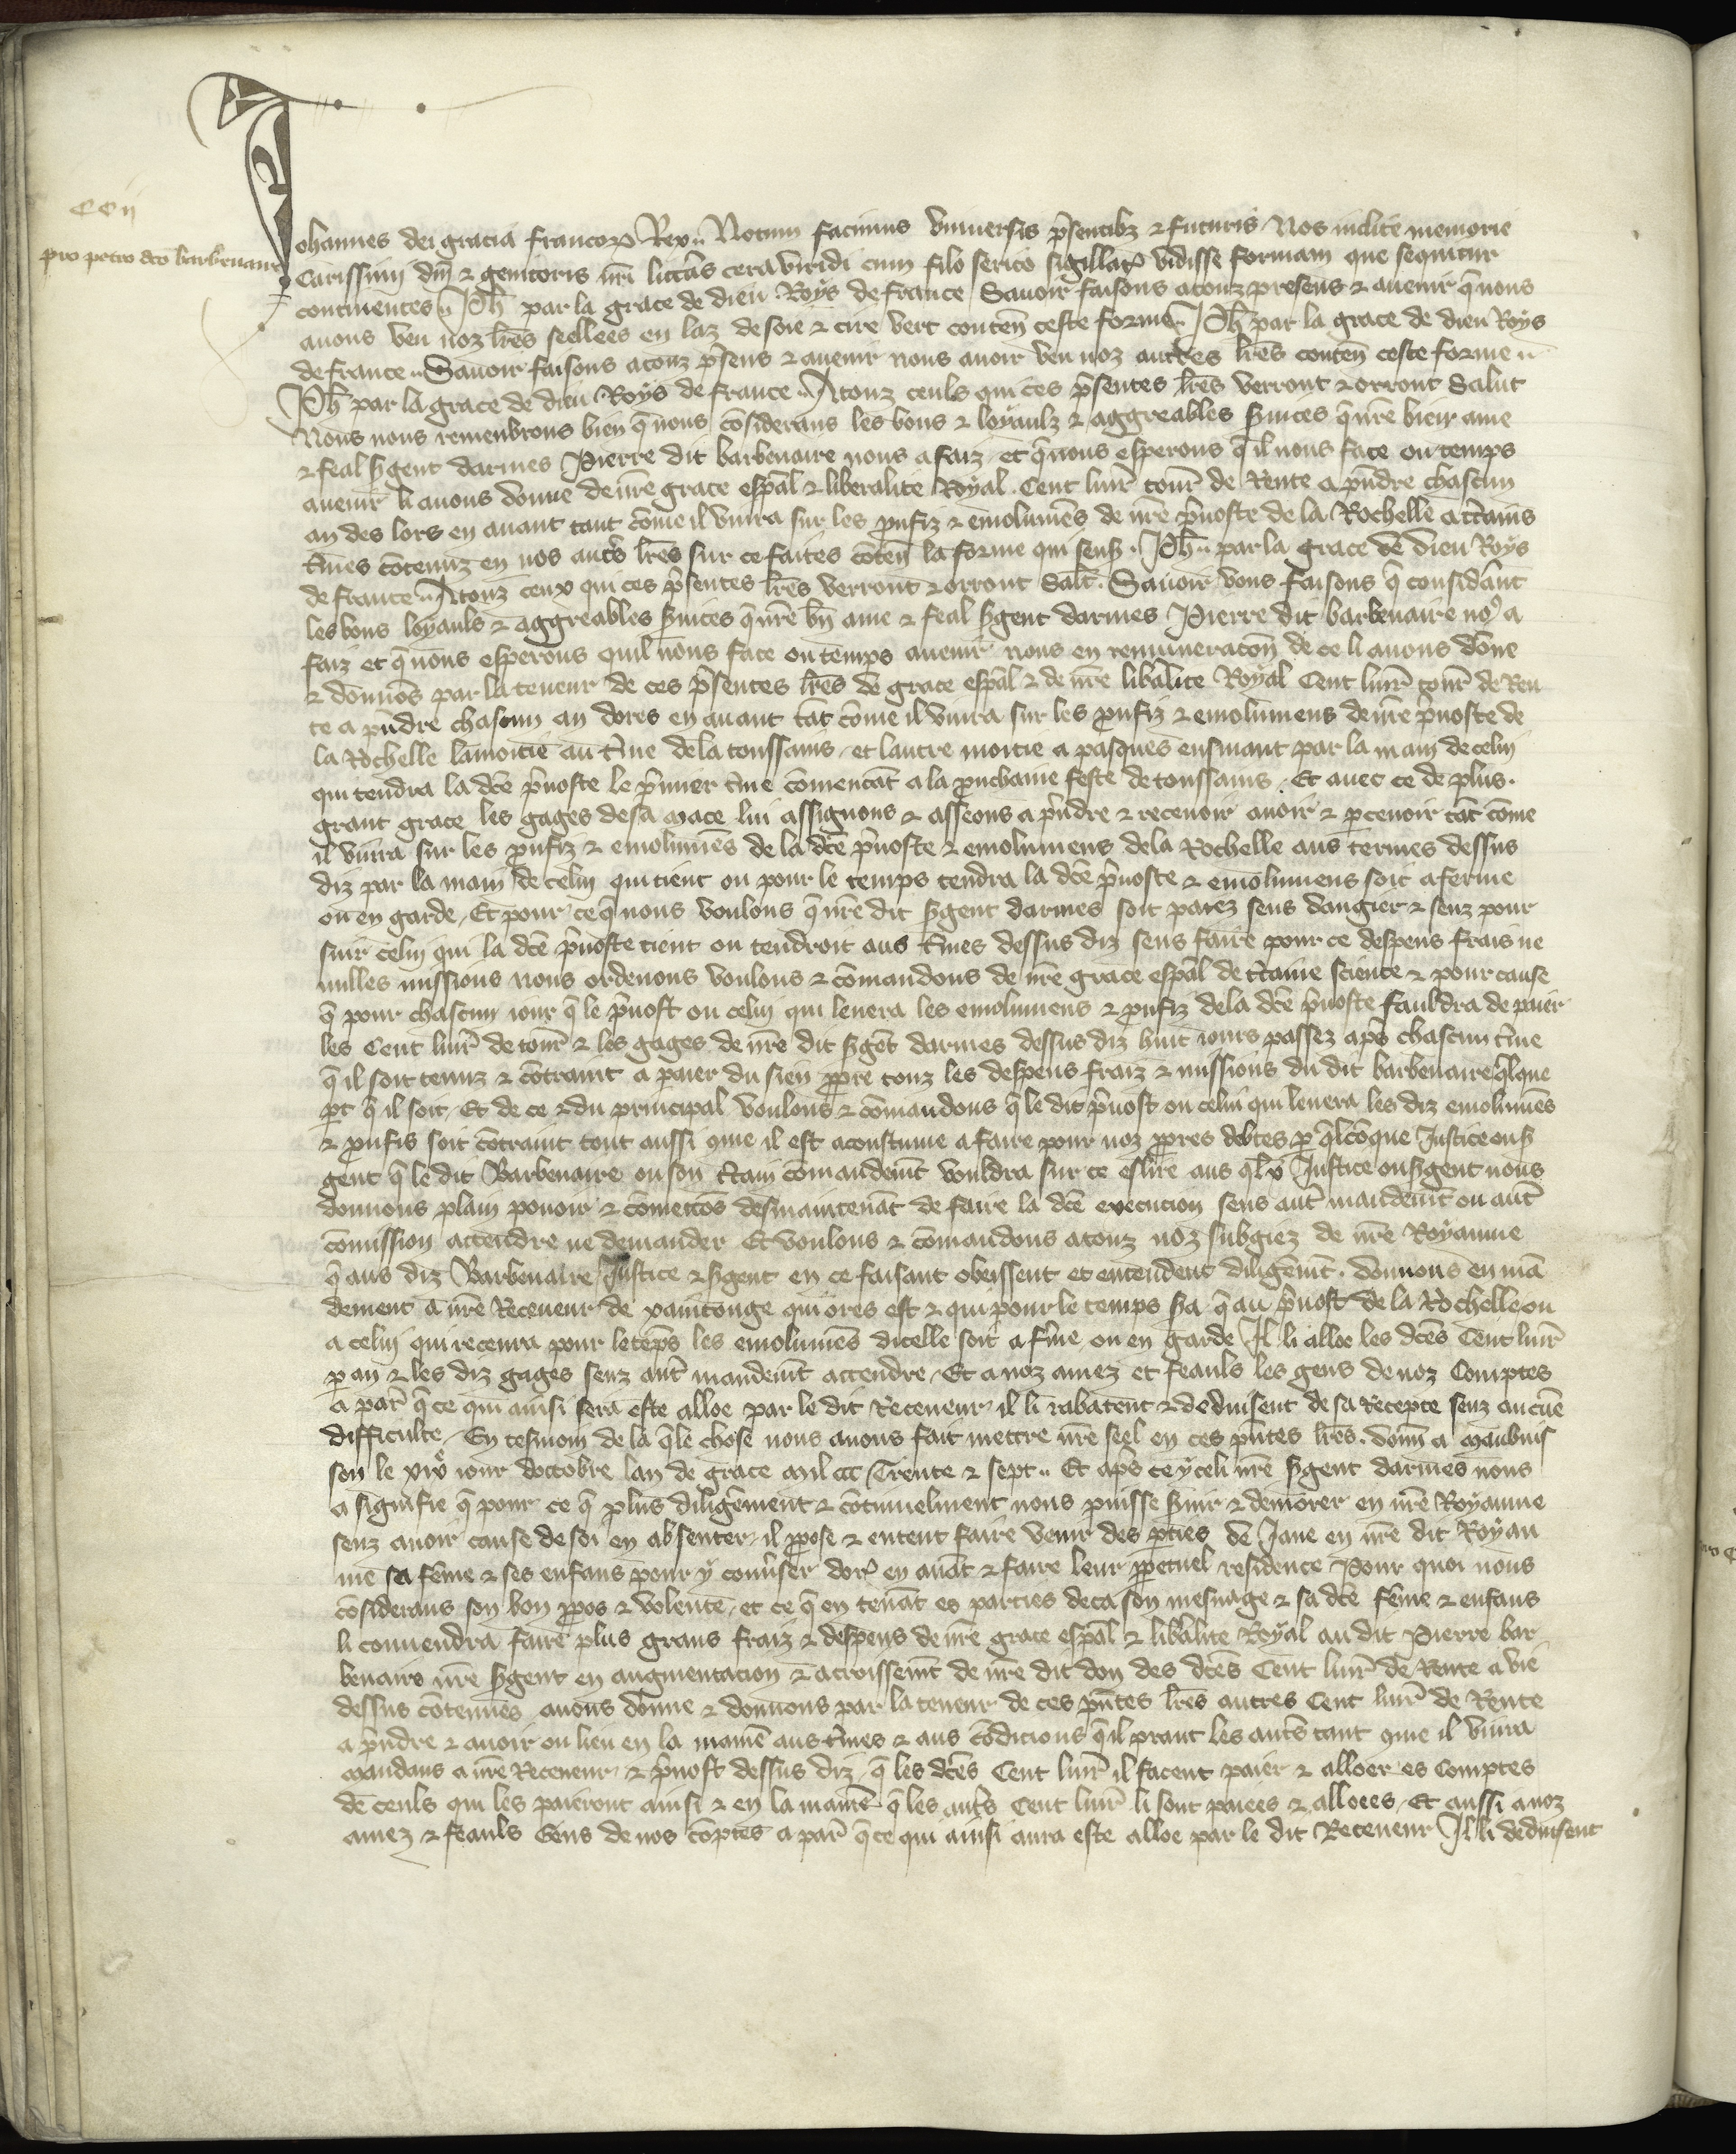 CCii
pro petro dco barbenaire
Johannes dei gracia francoꝝ Rex. Notum facimus Universis p̄sentibꝫ ⁊ futuris Nos inclite memorie
Carissimi dn̄i ⁊ genitoris nr̄i litt̄as cera viridi cum filo serico sigillat̄ vidisse formam que sequitur
continentes. Ph̄ par la grace de dieu Roys de france Savoir faisons a touz presens ⁊ avenir q̄ nous
avons veu noz lr̄es seellees en laz de soie ⁊ cire vert conten̄ ceste forme. Ph̄ par la grace de dieu Roys
de france. Savoir faisons a touz p̄sens ⁊ avenir nous avoir veu noz autres lr̄es conten̄ ceste forme
Ph̄ par la grace de dieu Roys de france. A touz ceuls qui ces p̄sentes lr̄es verront ⁊ orront Salut
Nous nous remenbrons bien q̄ nous cōsiderans les bons ⁊ loyaulz ⁊ aggreables s̄vices q̄ nr̄e bien ame
⁊ feal s̄gent darmes Pierre dit barbenaire nous a faiz et q̄ nous esperons q̄ il nous face ou temps
avenir li avons donne de nr̄e grace esp̄al ⁊ liberalite Royal. Cent livr̄ tour̄ de Rente a p̄ndre chascun
an des lors en avant tant cōme il vivra sur les p̄ufiz ⁊ emolumēs de nr̄e p̄voste de la Rochelle a c̄tains
t̄mes cōtenuz en nos aut̄s lr̄es sur ce faites cōten̄ la forme qui sensꝭ. Ph̄. par la grace de dieu Roys
de france. A touz ceux qui ces p̄sentes lr̄es verront ⁊ orront Salt̄. Savoir vous faisons q̄ consid̄ant
les bons loyauls ⁊ aggreables s̄vices q̄ nr̄e bn̄ ame ⁊ feal s̄gent darmes Pierre dit barbenaire noꝰ a
faiz et q̄ nous esperons quil nous face ou temps avenir nous en remuneracōn de ce li avons dōne
⁊ donnōs par la teneur de ces p̄sentes lr̄es de grace esp̄al ⁊ de nr̄e lib̄alite Royal Cent livr̄ tour̄ de Ren
te a p̄ndre chascun an dores en avant tāt cōme il vivra sur les p̄ufiz ⁊ emolumens de nr̄e p̄voste de
la Rochelle la moitie au t̄me de la toussains et lautre moitie a pasques ensivant par la main de celui
qui tendra la dc̄e p̄voste le p̄mier t̄me cōmencāt a la p̄uchaine feste de toussains. Et avec ce de plus
grant grace les gages de sa mace lui assignons ⁊ asseons a p̄ndre ⁊ recevoir avoir ⁊ p̄cevoir tāt cōme
il vivra sur les p̄ufiz ⁊ emolumēs de la dc̄e p̄voste ⁊ emolumens de la Rochelle aus termes dessus
diz par la main de celui qui tient ou pour le temps tendra la dc̄e p̄voste ⁊ emolumens soit a ferme
ou en garde. Et pour ce q̄ nous voulons q̄ nr̄e dit s̄gent darmes soit paiez sens dangier ⁊ senz pour
suir celui qui la dc̄e p̄voste tient ou tendroit aus t̄mes dessus diz sens faire pour ce despens frais ne
nulles missions nous ordenons voulons ⁊ cōmandons de nr̄e grace esp̄al de c̄taine science ⁊ pour cause
q̄ pour chascun iour q̄ le p̄vost ou celui qui levera les emolumens ⁊ p̄ufiz de la dc̄e p̄voste fauldra de paier
les Cent livr̄ de tour̄ ⁊ les gages de nr̄e dit s̄gēt darmes dessus diz huit iours passez ap̄s chascun t̄me
q̄ il soit tenuz ⁊ cōtraint a paier du sien p̄pre touz les despens fraiz ⁊ missions du dit barbenaire q̄lque
p̄t q̄ il soit. Et de ce ⁊ du principal voulons ⁊ cōmandons q̄ le dit p̄vost ou celui qui levera les diz emolumēs
⁊ p̄ufis soit cōtraint tout aussi cōme il est acoustume a faire pour noz p̄pres debtes p̄ q̄lcōque Justice ou s̄
gent q̄ le dit Barbenaire ou son c̄tain cōmandem̄t vouldra sur ce eslire aus q̄lx Justice ou s̄gent nous
donnons plain povoir ⁊ cōmettōs des maintenāt de faire la dc̄e execucion sens aut̄ mandem̄t ou aut̄
cōmission attendre ne demander Et voulons ⁊ cōmandons a touz noz subgiez de nr̄e Royaume
q̄ aus diz Barbenaire Justice ⁊ s̄gent en ce faisant obeissent et entendent diligēm̄t. donnons en mā
dement a nr̄e Receveur de xaintonge qui ores est ⁊ qui pour le temps s̄a q̄ au p̄vost de la Rochelle ou
a celui qui recevra pour le tēps les emolumēs dicelle soit a f̄me ou en garde Il li alloe les dc̄es Cent livr̄
p̄ an ⁊ les diz gages senz aut̄ mandem̄t attendre. Et a noz amez et feauls les gens de noz Comptes
a par̄ q̄ ce qui ainsi sera este alloe par le dit Receveur il li rabatent ⁊ deduisent de sa Recepte senz aucūe
difficulte. En tesmoin de la q̄le chose nous avons fait mettre nr̄e seel en ces p̄ntes lr̄es. donn̄ a maubuis
son le xixͤ iour doctobre lan de grace mil ccc Trente ⁊ sept. Et ap̄s ce yceli nr̄e s̄gent darmes nous
a signifie q̄ pour ce q̄ plus diligēment ⁊ cōtinuelment nous puisse s̄vir ⁊ demorer en nr̄e Royaume
senz avoir cause de soi en absenter il p̄pose ⁊ entent faire venir des p̄ties de Jane en nr̄e dit Royau
me sa fēme ⁊ ses enfans pour y conv̄ser dor̄ en avāt ⁊ faire leur p̄petuel residence Pour quoi nous
cōsiderans son bon p̄pos ⁊ volente et ce q̄ en tenāt es parties deca son mesnage ⁊ sa dc̄e fēme ⁊ enfans
li convendra faire plus grans fraiz ⁊ despens de nr̄e grace esp̄al ⁊ lib̄alite Royal au dit Pierre bar
benaire nr̄e s̄gent en augmentacion ⁊ acroissem̄t de nr̄e dit don des dc̄es Cent livr̄ de Rente a vie
dessus cōtenues avons donne ⁊ donnons par la teneur de ces p̄ntes lr̄es autres Cent livr̄ de Rente
a p̄ndre ⁊ avoir ou lieu en la manie᷑ aus t̄mes ⁊ aus cōdicions q̄ il prant les aut̄s tant cōme il vivra
mandans a nr̄e Receveur ⁊ p̄vost dessus diz q̄ les dc̄es Cent livr̄ il facent paier ⁊ alloer es Comptes
de ceuls qui les paieront ainsi ⁊ en la manie᷑ q̄ les aut̄s Cent livr̄ li sont paiees ⁊ alloees. Et aussi a noz
amez ⁊ feauls Gens de nos cōptes a par̄ q̄ ce qui ainsi aura este alloe par le dit Receveur Il li deduisent